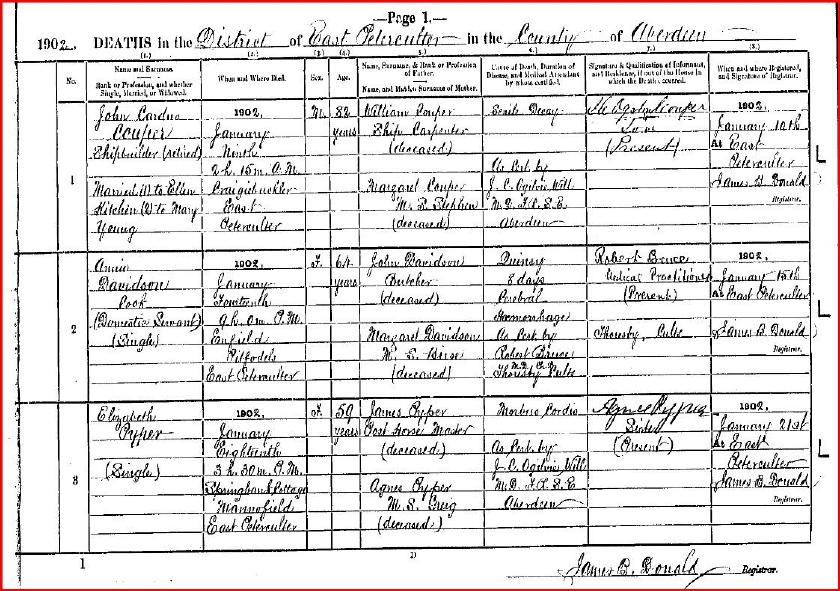 —Page 1.—
1902. DEATHS in the District of East Peterculter in the County of Aberdeen
(1.) (2.) (3.) (4.) (5.) (6.) (7.) (8.)
No.
Name and Surname.
Rank or Profession, and whether
Single, Married, or Widowed.
When and Where Died.
Sex.
Age.
Name, Surname, & Rank or Profession
of Father.
Name, and Maiden Surname of Mother.
Cause of Death, Duration of
Disease, and Medical Attendant
by whom certified.
Signature & Qualification of Informant,
and Residence, if out of the House in
which the Death occurred.
When and where Registered,
and Signature of Registrar.
1
John Cardno
Couper
Shipbuilder (retired)
Married (1) to Ellen
Hitchin (2) to Mary
Young
1902,
January
Ninth
2 h. 15 m. A.M.
Craigiebuckler
East
Peterculter
M.
82
years
William Couper
Ship Carpenter
(deceased)
Margaret Couper
M. S. Stephen
(deceased)
Senile Decay
As Cert by
J. C. Ogilvie Will
M.D. F.R.S.E
Aberdeen
Couper
Son
(Present)
1902.
January 10th
At East
Peterculter
James B. Donald
Registrar.
2
Annie
Davidson
Cook
(Domestic Servant)
(Single)
1902,
January
Fourteenth
9 h. 0 m. P.M.
Enfield
Pitfodels
East Peterculter
F.
64
years
John Davidson
Butcher
(deceased)
Margaret Davidson
M. S. Birse
(deceased)
Quinsy
8 days
Cerebral
Haemorrhage
As Cert by
Robert Bruce
M.D. C.M.
Thoresby Cults
Robert Bruce
Medical Practitioner
(Present)
Thoresby, Cults
1902.
January 15th
At East Peterculter
James B. Donald
Registrar.
3
Elizabeth
Pyper
(Single)
1902,
January
Eighteenth
3 h. 30 m. P.M.
Springbank Cottage
Mannofield
East Peterculter
F.
59
years
James Pyper
Post Horse Master
(deceased)
Agnes Pyper
M. S. Greig
(deceased)
Morbus Cordis
As Cert by
J. C. Ogilvie Will
M.D. F.R.S.E
Aberdeen
Agnes Pyper
Sister
(Present)
1902.
January 21st
At East
Peterculter
James B. Donald
Registrar.
1
James B. Donald Registrar.